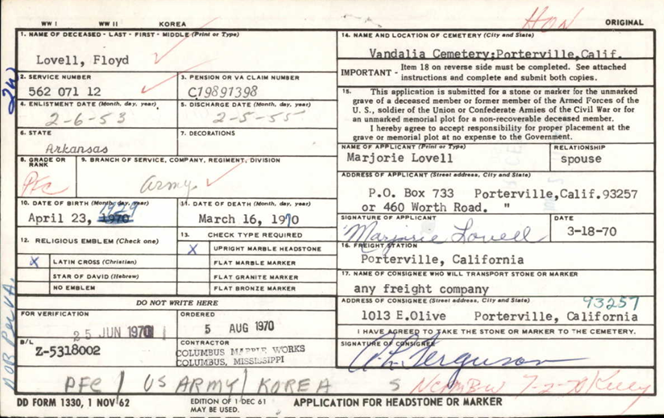 WW I WW II KOREA HON ORIGINAL
1. NAME OF DECEASED - LAST - FIRST - MIDDLE (Print or Type)
Lovell, Floyd
2. SERVICE NUMBER
562 071 12
3. PENSION OR VA CLAIM NUMBER
C19891398
4. ENLISTMENT DATE (Month, day, year)
2-6-53
5. DISCHARGE DATE (Month, day, year)
2-5-55
6. STATE
Arkansas
7. DECORATIONS
8. GRADE OR RANK
PFC
9. BRANCH OF SERVICE, COMPANY, REGIMENT, DIVISION
Army
10. DATE OF BIRTH (Month, day, year)
1929
April 23, 1970
11. DATE OF DEATH (Month, day, year)
March 16, 1970
12. RELIGIOUS EMBLEM (Check one)
X LATIN CROSS (Christian)
STAR OF DAVID (Hebrew)
NO EMBLEM
13. CHECK TYPE REQUIRED
X UPRIGHT MARBLE HEADSTONE
FLAT MARBLE MARKER
FLAT GRANITE MARKER
FLAT BRONZE MARKER
DO NOT WRITE HERE
FOR VERIFICATION
25 JUN 1970
ORDERED
5 AUG 1970
B/L
Z-5318002
CONTRACTOR
COLUMBUS MARBLE WORKS
COLUMBUS, MISSISSIPPI
14. NAME AND LOCATION OF CEMETERY (City and State)
Vandalia Cemetery;Porterville,Calif.
IMPORTANT - Item 18 on reverse side must be completed. See attached
instructions and complete and submit both copies.
15. This application is submitted for a stone or marker for the unmarked
grave of a deceased member or former member of the Armed Forces of the
U. S., soldier of the Union or Confederate Armies of the Civil War or for
an unmarked memorial plot for a non-recoverable deceased member.
I hereby agree to accept responsibility for proper placement at the
grave or memorial plot at no expense to the Government.
NAME OF APPLICANT (Print or Type)
Marjorie Lovell
RELATIONSHIP
spouse
ADDRESS OF APPLICANT (Street address, City and State)
P.O. Box 733 Porterville,Calif.93257
or 460 Worth Road. "
SIGNATURE OF APPLICANT
Marjorie Lovell
DATE
3-18-70
16. FREIGHT STATION
Porterville, California
17. NAME OF CONSIGNEE WHO WILL TRANSPORT STONE OR MARKER
any freight company
ADDRESS OF CONSIGNEE (Street address, City and State) 93257
1013 E.Olive Porterville, California
I HAVE AGREED TO TAKE THE STONE OR MARKER TO THE CEMETERY.
SIGNATURE OF CONSIGNEE
Ferguson
PFC / US ARMY / KOREA
S 7-2-70 Kelly
DD FORM 1330, 1 NOV 62
EDITION OF 1 DEC 61
MAY BE USED.
APPLICATION FOR HEADSTONE OR MARKER